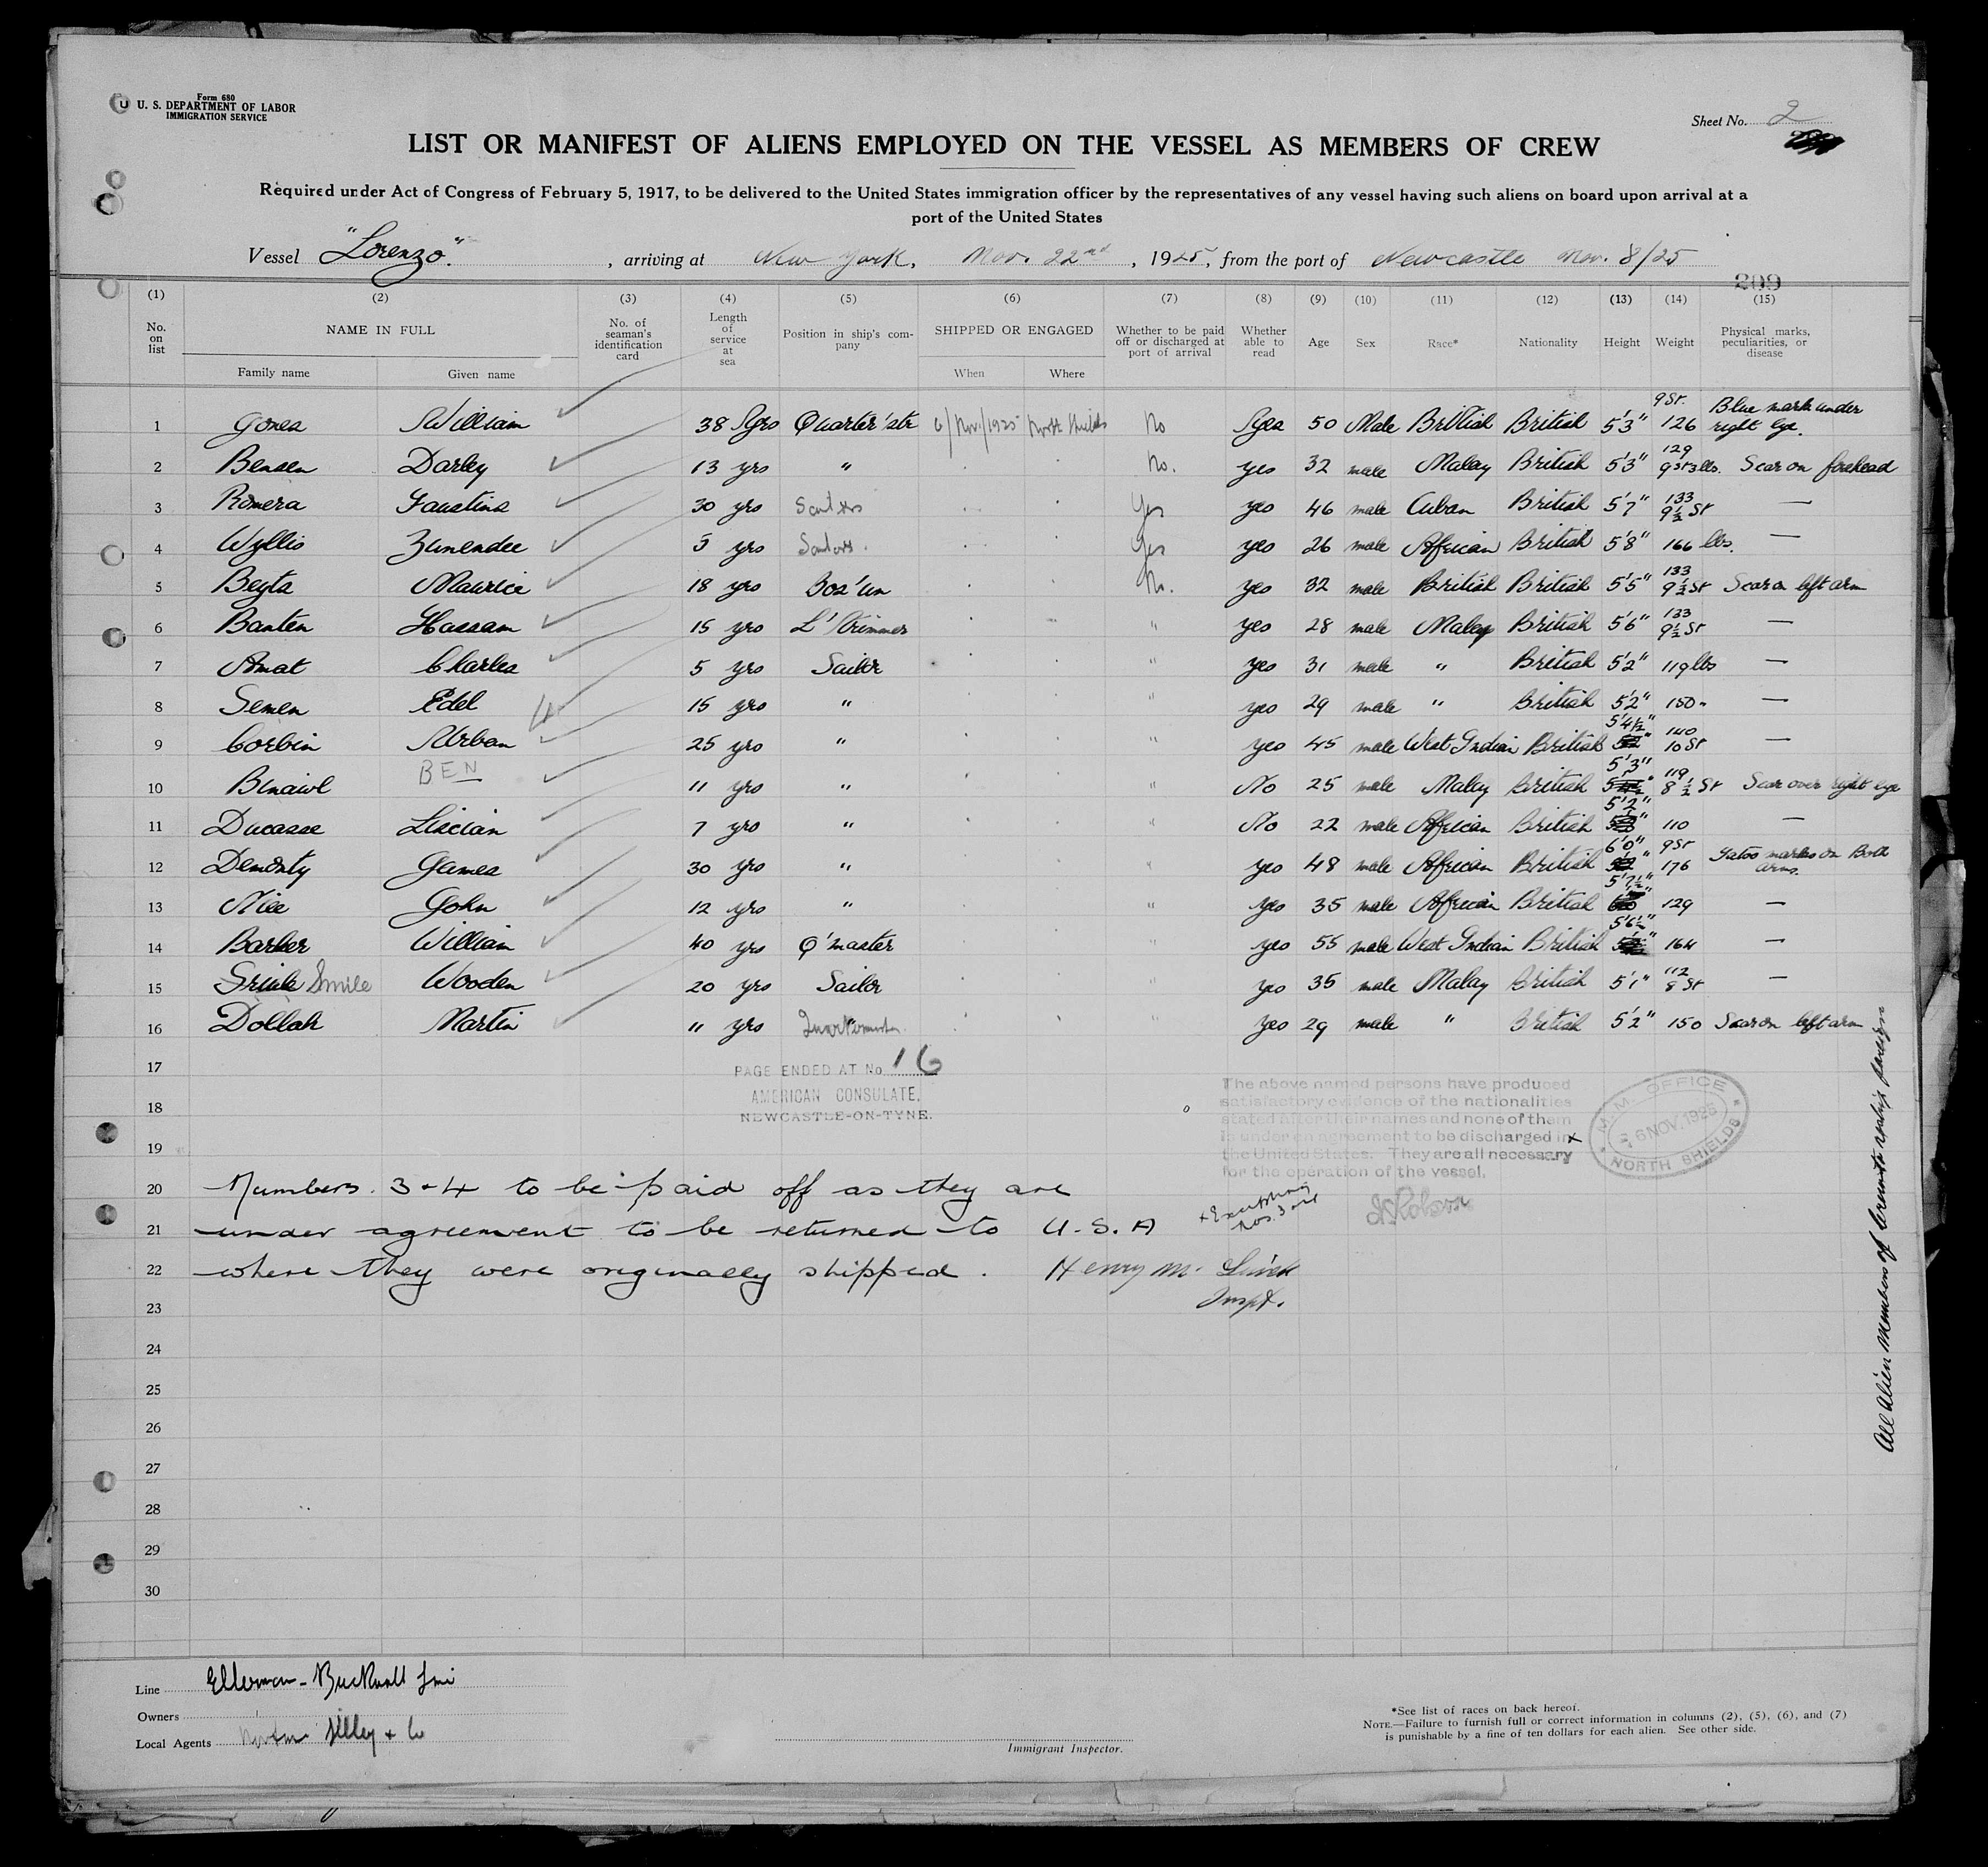 Form 680
U. S. DEPARTMENT OF LABOR
IMMIGRATION SERVICE
Sheet No. 2
LIST OR MANIFEST OF ALIENS EMPLOYED ON THE VESSEL AS MEMBERS OF CREW
Required under Act of Congress of February 5, 1917, to be delivered to the United States immigration officer by the representatives of any vessel having such aliens on board upon arrival at a
port of the United States
Vessel "Lorenzo", arriving at New York, Nov. 22nd, 1925, from the port of Newcastle Nov. 8/25
209
(1) (2) (3) (4) (5) (6) (7) (8) (9) (10) (11) (12) (13) (14) (15)
No. on list NAME IN FULL No. of seaman's identification card Length of service at sea Position in ship's company SHIPPED OR ENGAGED Whether to be paid off or discharged at port of arrival Whether able to read Age Sex Race* Nationality Height Weight Physical marks, peculiarities, or disease
Family name Given name When Where
1 Jones William 38 yrs Quarter'str 6/Nov/1925 North Shields No Yes 50 Male British British 5'3" 9 St. 126 Blue mark under right eye.
2 Bensen Darley 13 yrs " No. yes 32 male Malay British 5'3" 129 9 st 3 lbs. Scar on forehead
3 Romera Faustino 30 yrs Yes yes 46 male Cuban British 5'7" 133 9½ St —
4 Wyllis 5 yrs Yes yes 26 male African British 5'8" 166 lbs. —
5 Beyts Maurice 18 yrs Bos'un No. yes 32 male British British 5'5" 133 9½ St Scar on left arm
6 Banten Hassam 15 yrs L'Trimmer " yes 28 male Malay British 5'6" 133 9½ St —
7 Amat Charles 5 yrs Sailor " yes 31 male " British 5'2" 119 lbs —
8 Semen Edel 15 yrs " " yes 29 male " British 5'2" 150 " —
9 Corbin Urban 25 yrs " " yes 45 male West Indian British 5'4½" 140 10 St —
10 Binawl BEN 11 yrs " " No 25 male Malay British 5'3" 119 8½ St Scar over right eye
11 Ducasse Liscian 7 yrs " " No 22 male African British 5'2" 110 —
12 Demonty James 30 yrs " " yes 48 male African British 6'0" 9 St 176 Tatoo marks on Both arms.
13 Nice John 12 yrs " " yes 35 male African British 5'7½" 129 —
14 Barber William 40 yrs Q'master " yes 55 male West Indian British 5'6½" 164 —
15 Smile Wooden 20 yrs Sailor " yes 35 male Malay British 5'1" 112 8 St —
16 Dollah Martin 11 yrs Quartermaster " yes 29 male " British 5'2" 150 Scar on left arm
17
PAGE ENDED AT No. 16
AMERICAN CONSULATE,
NEWCASTLE-ON-TYNE.
18
19
The above named persons have produced
satisfactory evidence of the nationalities
stated after their names and none of them
is under an agreement to be discharged in x
the United States. They are all necessary
for the operation of the vessel.
M. M. OFFICE
6 NOV. 1925
NORTH SHIELDS
20 Numbers 3 & 4 to be paid off as they are
21 under agreement to be returned to U.S.A
22 where they were originally shipped. Henry M.
Inspt.
23
24
25
26
27
28
29
30
All Alien Members of
Line Ellerman-Bucknall
Owners
Local Agents Norton Lilley & Co
Immigrant Inspector.
*See list of races on back hereof.
NOTE.—Failure to furnish full or correct information in columns (2), (5), (6), and (7)
is punishable by a fine of ten dollars for each alien. See other side.